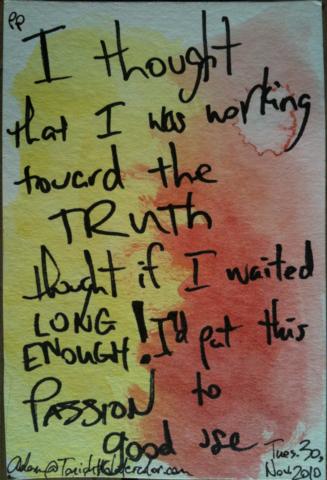 PP
I thought
that I was working
toward the
TRUTH
thought if I waited
LONG
ENOUGH! I'd put this
PASSION to
good use
Tues. 30,
Nov. 2010